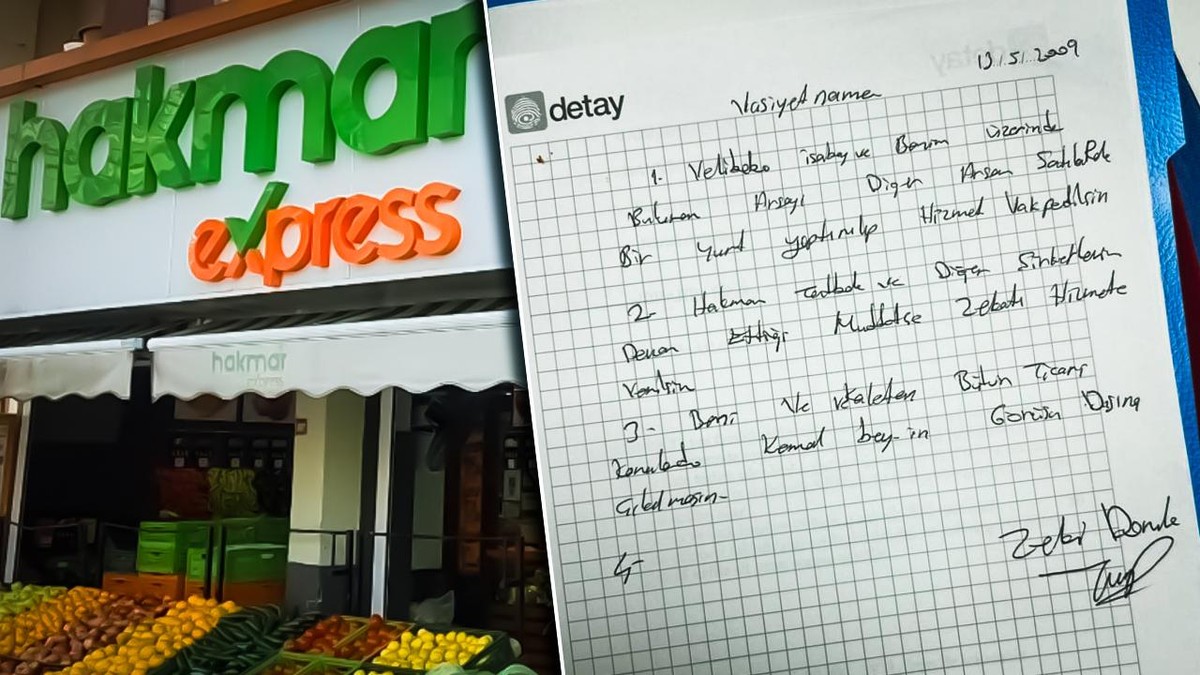 hakmar
express
hakmar
express
detay
13.5.2009
Vasiyetname
1. Velibaba isabey ve Benim üzerimde
Bulunan Arsayı Diğer Arsam Satılarak
Bir Yurt yaptırılıp Hizmet Vakfedilsin
2- Hakmar ve Diğer Şirketlerim
Devam Ettiği Müddetçe Zekatı Hizmete
Verilsin
3- Beni Ve vekaleten Bütün Ticari
Konularda Kemal bey-in Görüşü Dışına
Gidilmesin-
4-
Zeki